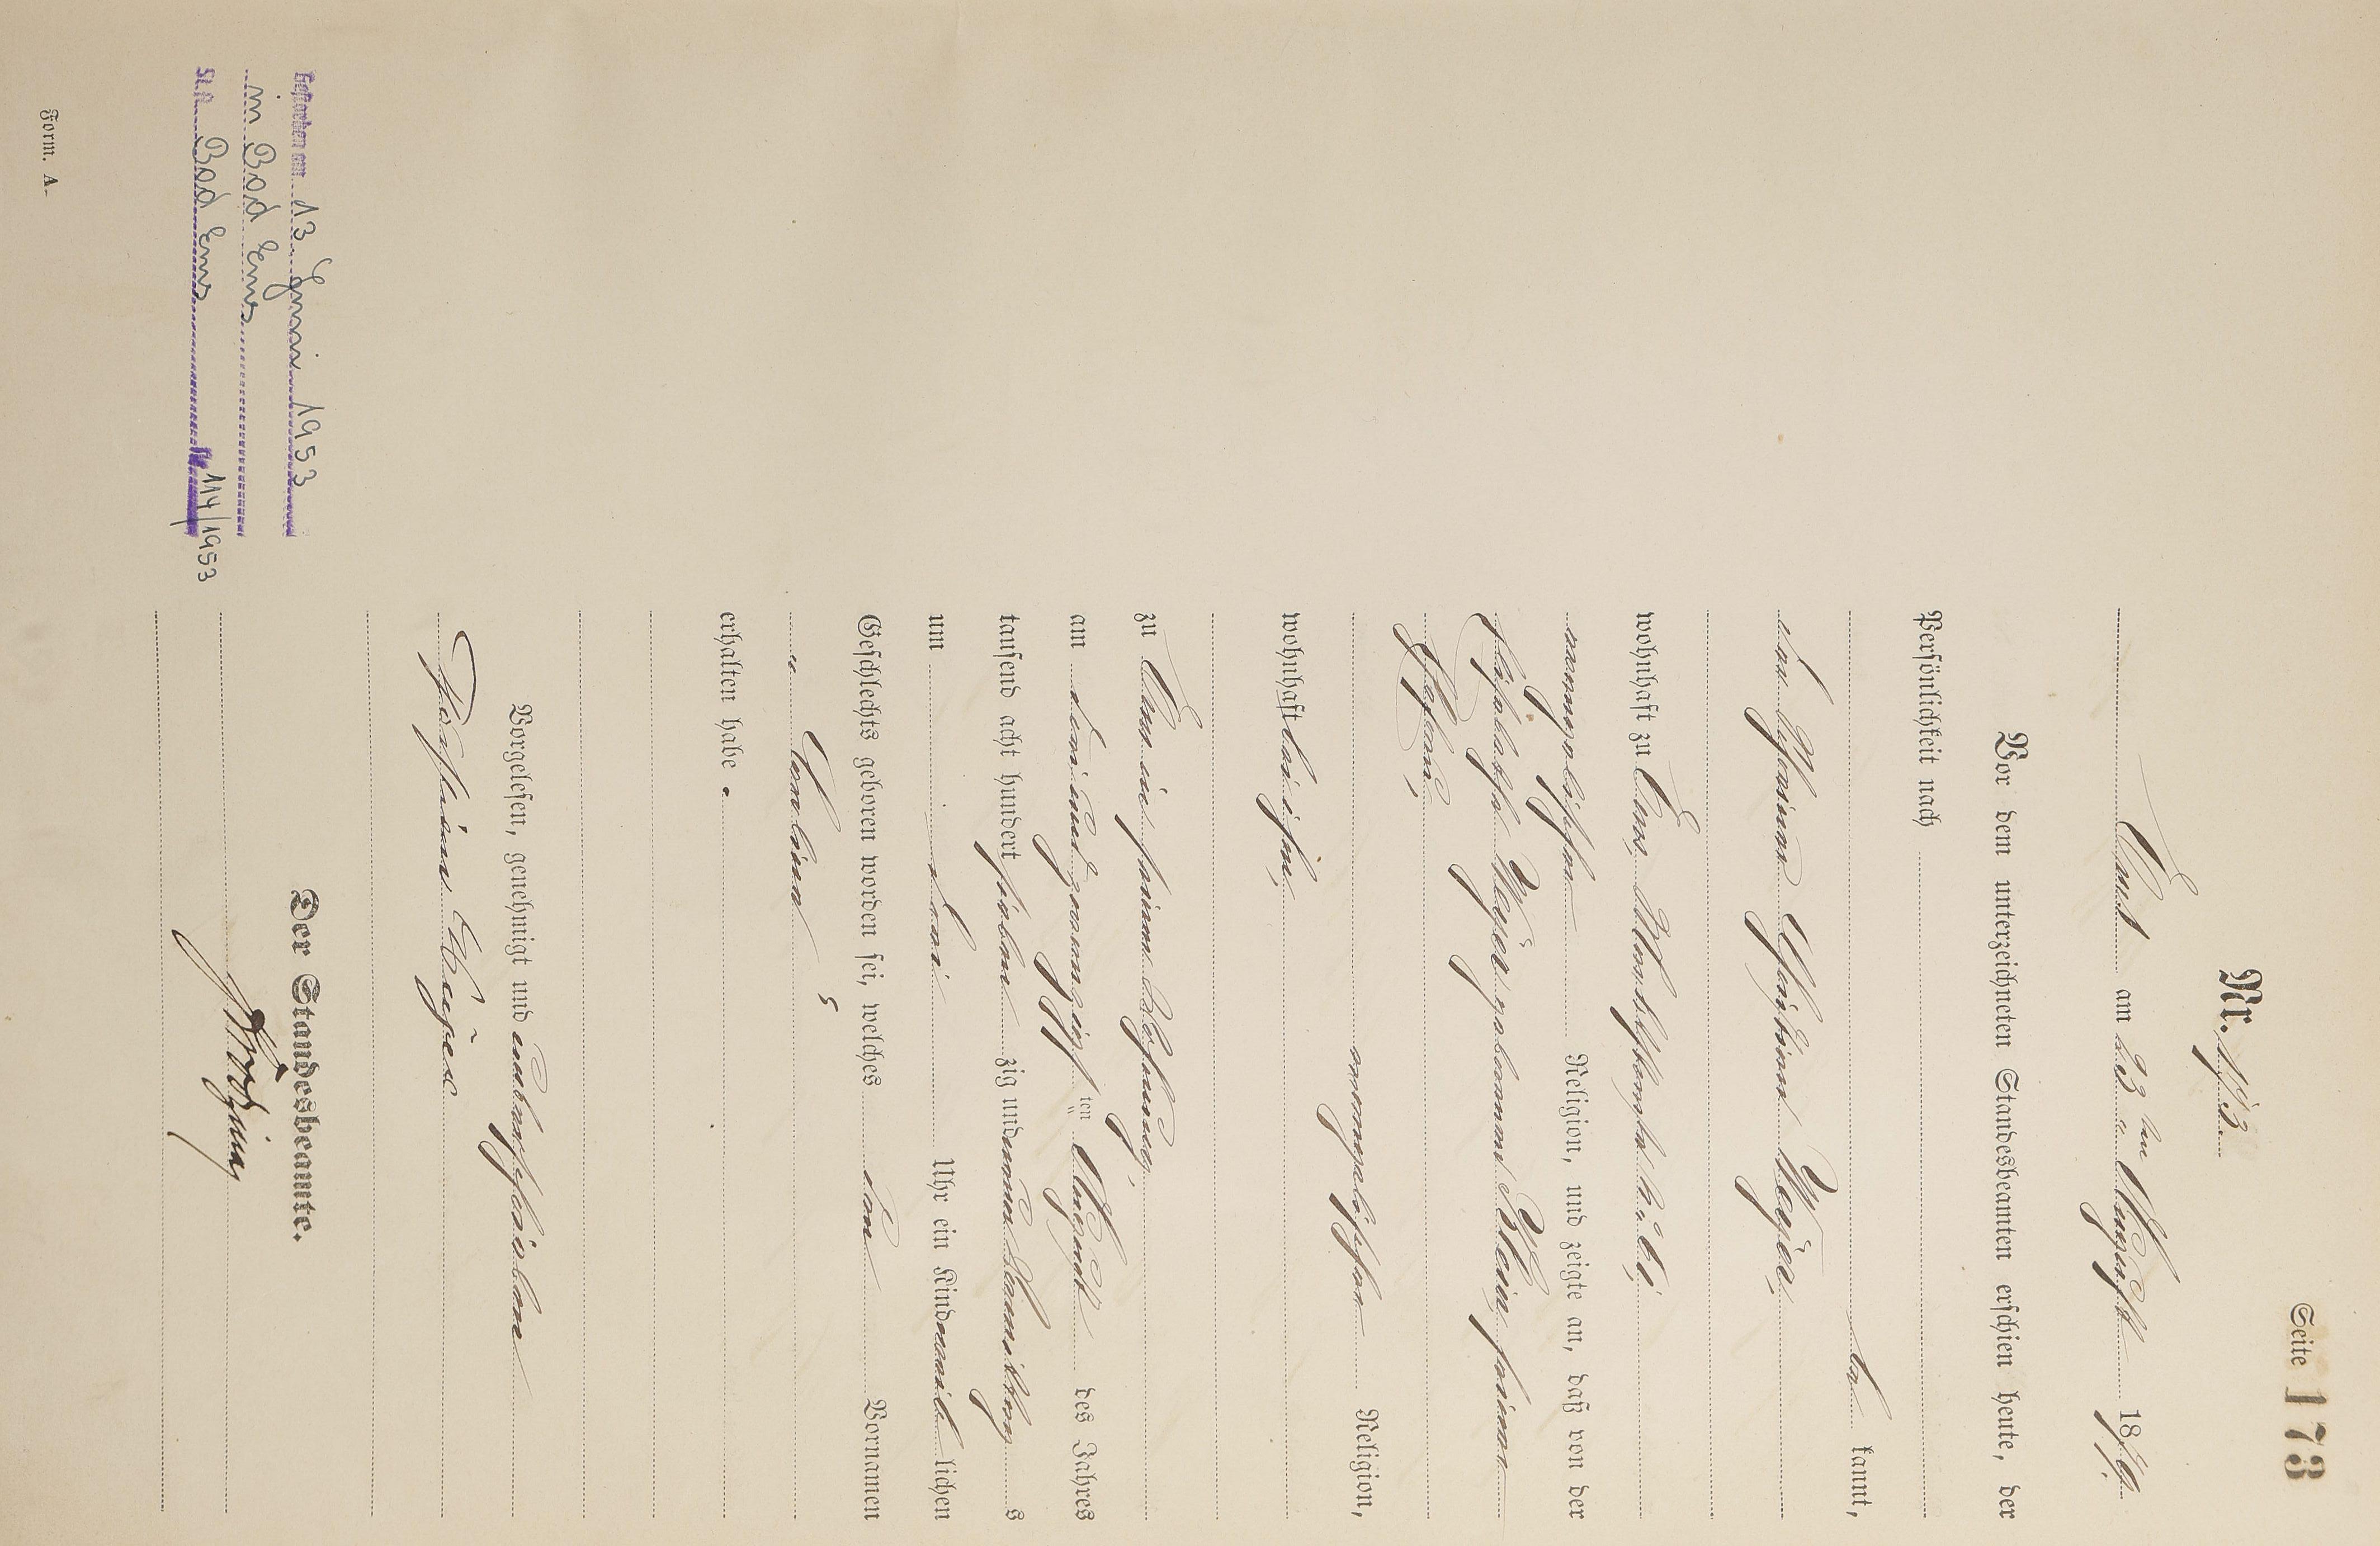 Seite 173
Nr. 173.
Ems am 23ten August 1879.
Vor dem unterzeichneten Standesbeamten erschien heute, der
Persönlichkeit nach
be kannt,
der Christian Weyer,
wohnhaft zu Ems,
evangelischer Religion, und zeigte an, daß von der
Elisabetha Weyer geborenen Klein, seiner
Ehefrau,
evangelischer Religion,
wohnhaft bei ihm,
zu Ems in seiner Wohnung,
am drei und zwanzigsten August des Jahres
tausend acht hundert sieben zig und neun Vormittags
um drei Uhr ein Kind weib lichen
Geschlechts geboren worden sei, welches den Vornamen
erhalten habe.
Vorgelesen, genehmigt und unterschrieben
Christian Weyer
Der Standesbeamte.
Gestorben am 13. Juni 1953
in Bad Ems
St. A. Bad Ems Nr. 114/1953
Form. A.